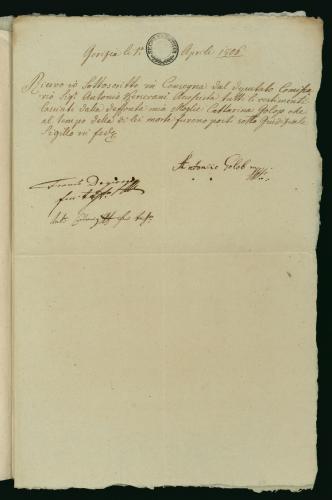 Gorizia li 1mo Aprile 1806
Ricevo io Sottoscritto in Consegna dal deputato Comissa
rio Sigr Antonio tutti li vestimenti
lasciati dalla deffonta mia Moglie Cattarina Golop che
al tempo della di lei morte furono posti sotto Giudiziale
Sigillo in fede
Antonio Golob
fui test
fui test